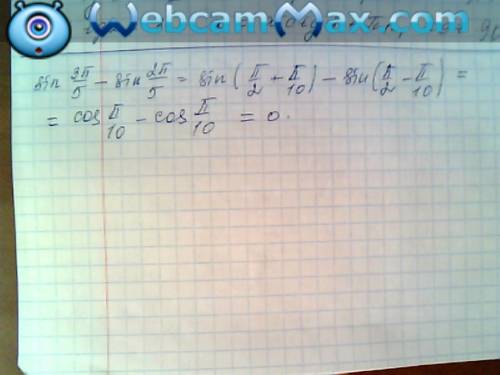 WebcamMax.com
sin 3π/5 - sin 2π/5 = sin(π/2 + π/10) - sin(π/2 - π/10) =
= cos π/10 - cos π/10 = 0.